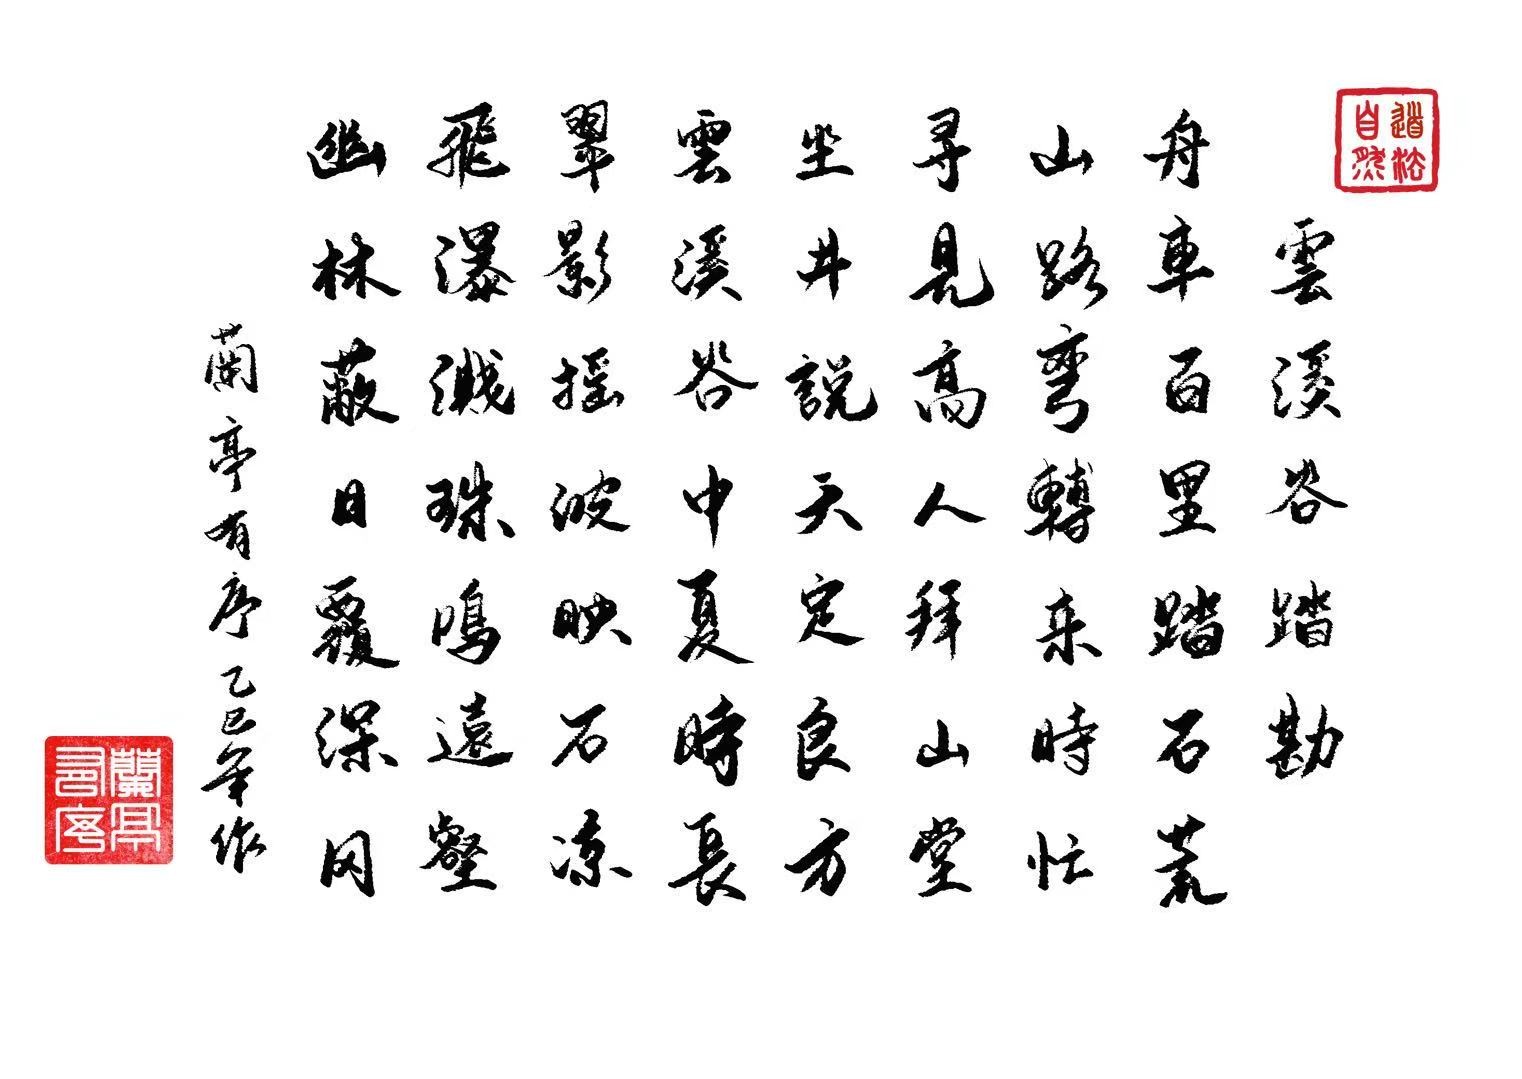 道法自然
雲溪谷踏勘
舟車百里踏石荒
山路彎轉来時忙
尋見高人拜山堂
坐井說天定良方
雲溪谷中夏時長
翠影摇波映石凉
飛瀑濺珠鳴遠壑
幽林蔽日覆深冈
蘭亭有序乙巳年作
蘭亭有序